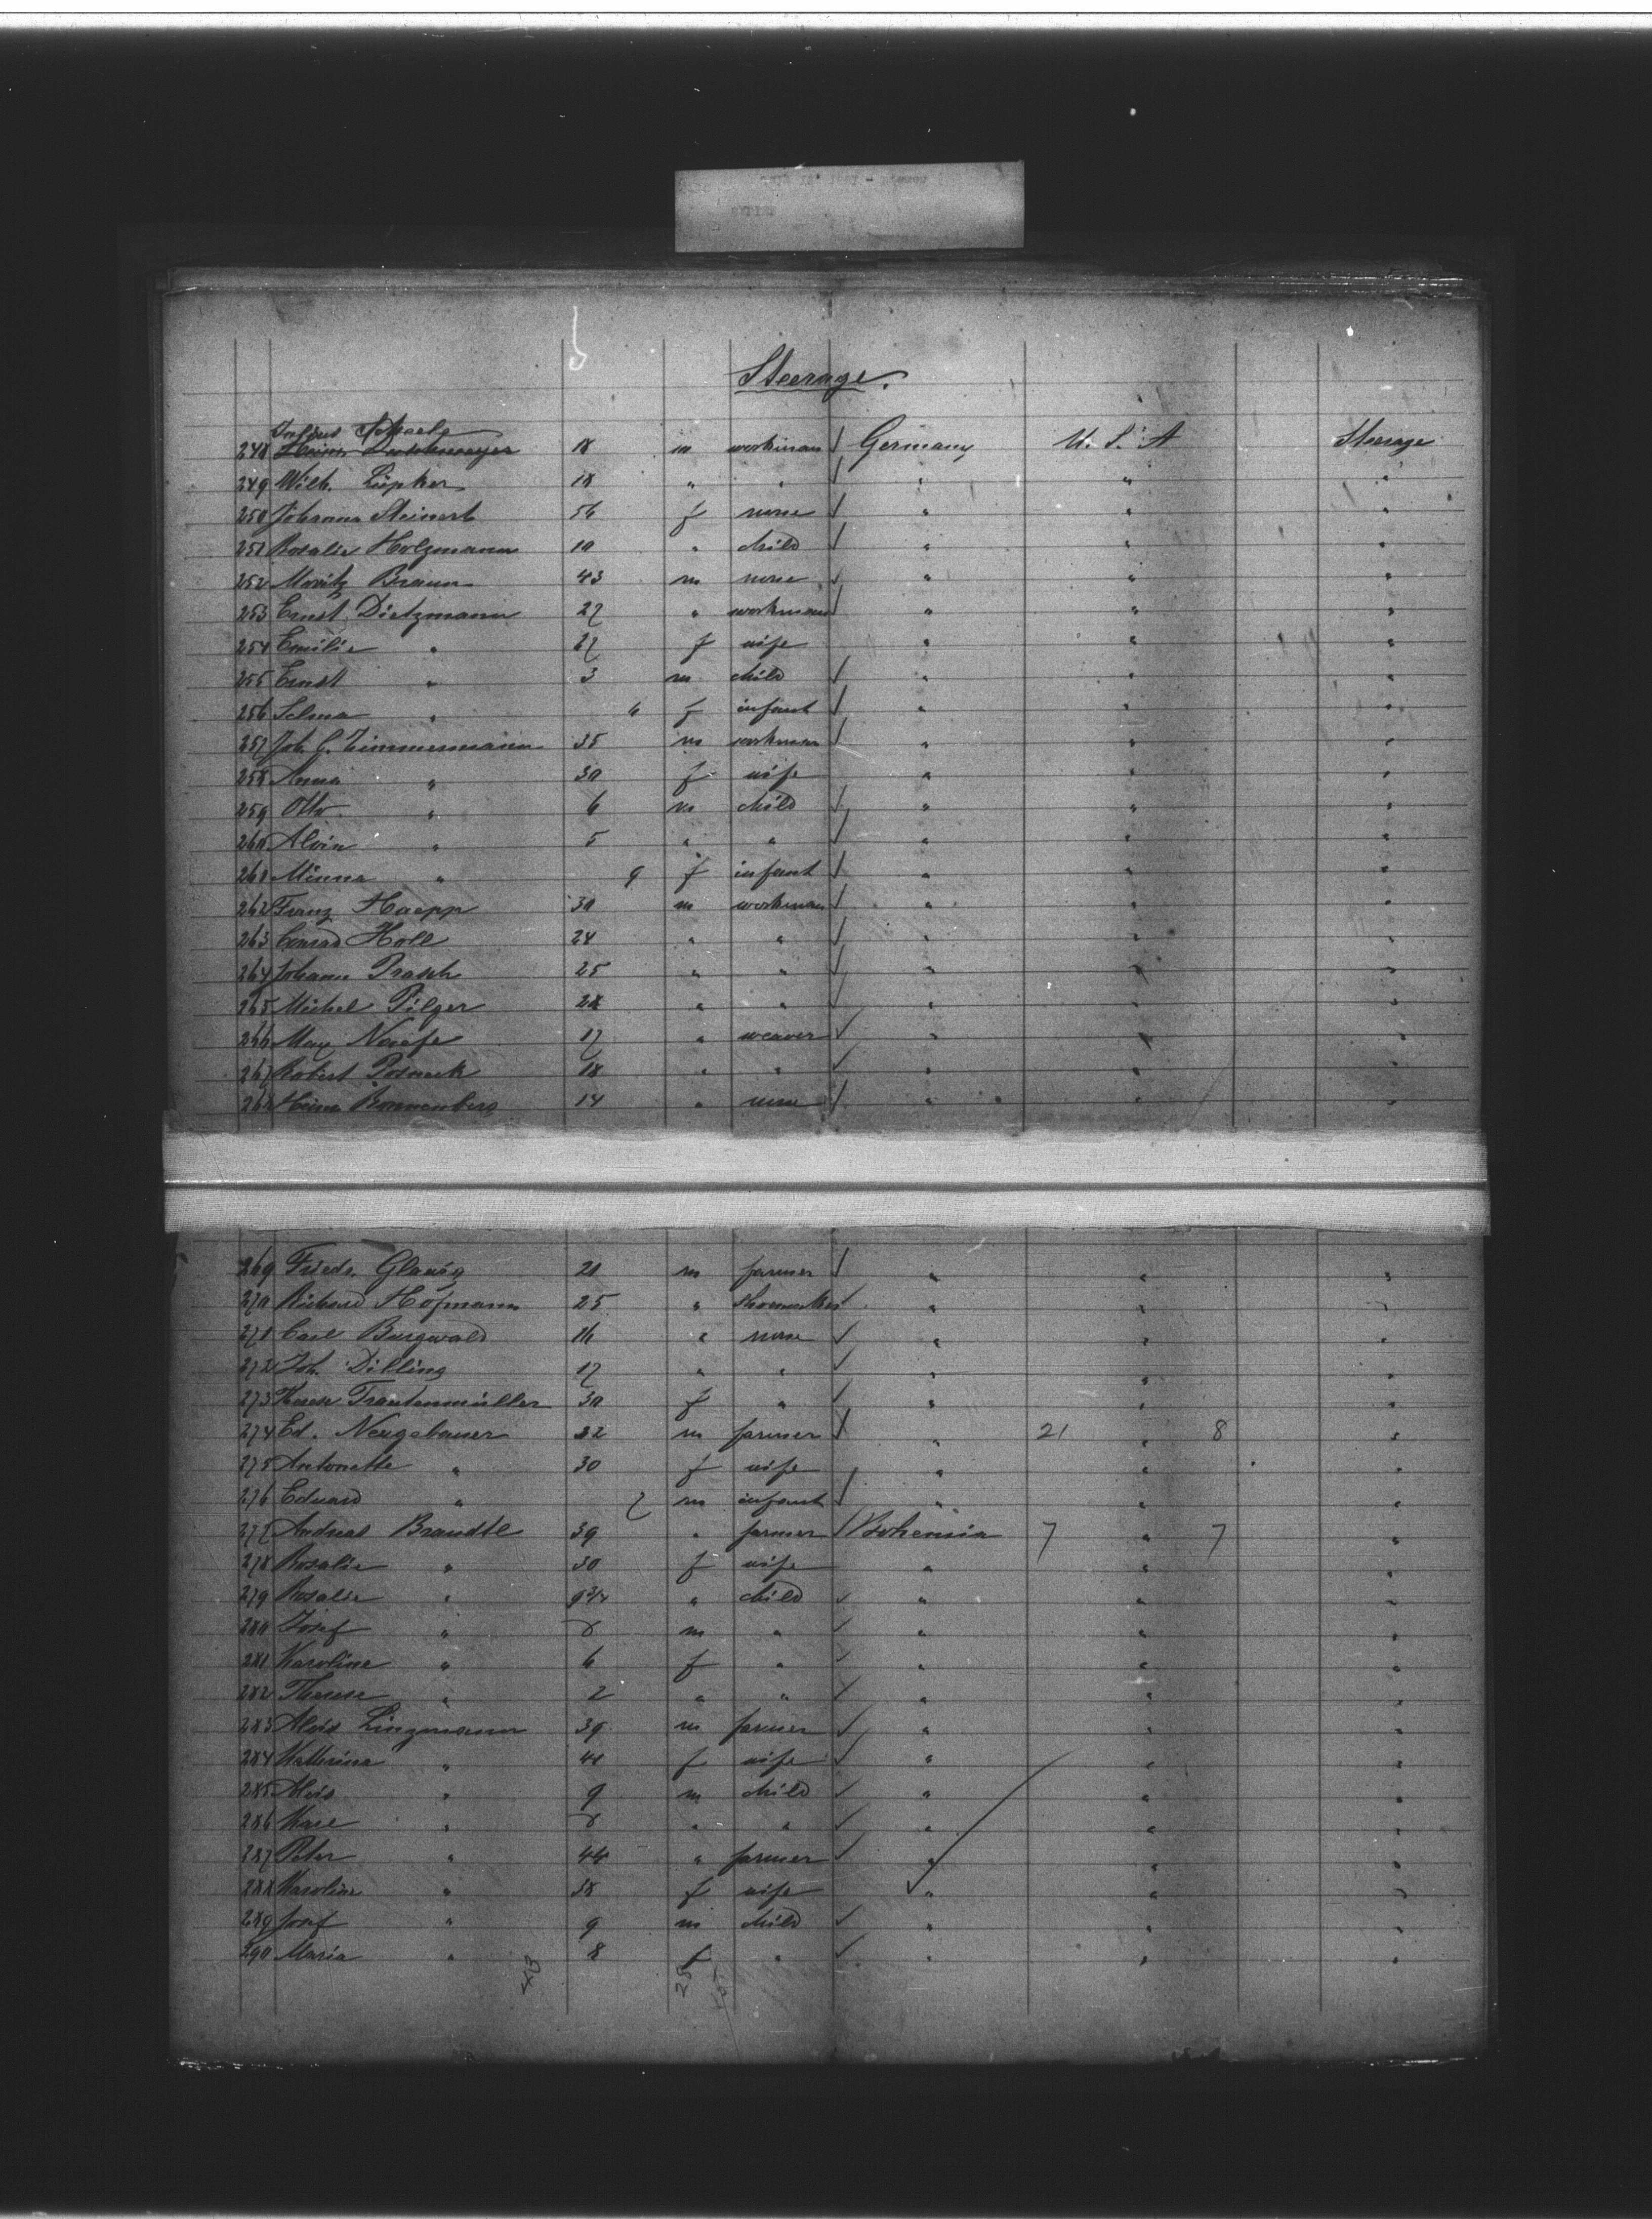 Steerage.
248 18 m workman Germany U. S. A Steerage
249 Wilh. Lüpker 18 " " " " "
250 Johanna Steinert 56 f none " " "
251 Rosalie Holzmann 10 " child " " "
252 Moritz Braun 43 m none " " "
253 Ernst Dietzmann 27 " workman " " "
254 Emilie " 27 f wife " " "
255 Ernst " 3 m child " " "
256 Selma " 6 f infant " " "
257 Joh. C. Zimmermann 35 m workman " " "
258 Anna " 30 f wife " " "
259 Otto " 6 m child " " "
260 Alvin " 5 " " " " "
261 Minna " 9 f infant " " "
262 Franz Haepp 30 m workman " " "
263 Conrad Holl 24 " " " " "
264 Johann Prasch 25 " " " " "
265 Michel Pilger 28 " " " " "
266 Max 17 " weaver " " "
267 Robert 18 " " " " "
268 Heinr. Bonnenberg 14 " none " " "
269 Friedr. 20 m farmer " " "
270 Richard Hofmann 25 " shoemaker " " "
271 Carl Burgwald 16 " none " " "
272 Joh. Dilling 17 " " " " "
273 Trautenmüller 30 f " " " "
274 Ed. Neugebauer 32 m farmer " 21 " 8 "
275 Antonette " 30 f wife " " "
276 Eduard " 7 m infant " " "
277 Andreas Brandtl 39 " farmer Bohemia 7 " 7 "
278 Rosalie " 30 f wife " " "
279 Rosalie " " child " " "
280 Josef " 8 m " " " "
281 Karoline " 6 f " " " "
282 Therese " 2 " " " " "
283 Alois Linzmann 39 m farmer " " "
284 Katherina " f wife " " "
285 Alois " 9 m child " " "
286 " 8 " " " " "
287 Peter " 44 " farmer " " "
288 Karoline " 38 f wife " " "
289 Josef " 9 m child " " "
290 Maria " 8 f " " " "